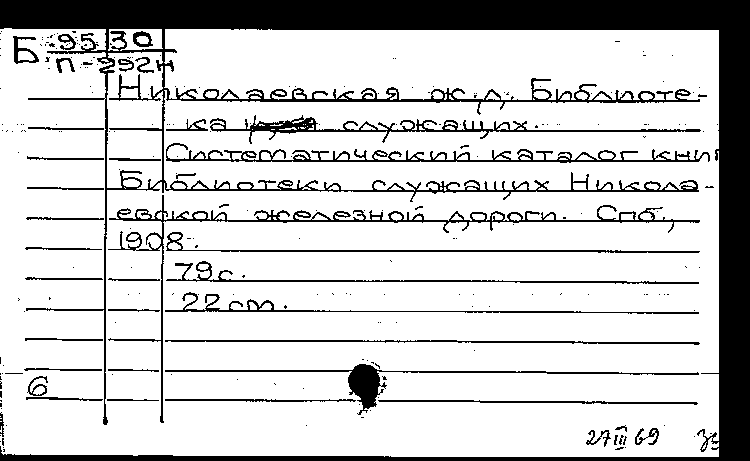 Б 9530
П-292н
Николаевская ж.д. Библиоте-
ка служащих.
Систематический каталог книг
Библиотеки служащих Никола-
евской железной дороги. Спб.,
1908.
79с.
22 cm.
6
27 III 69